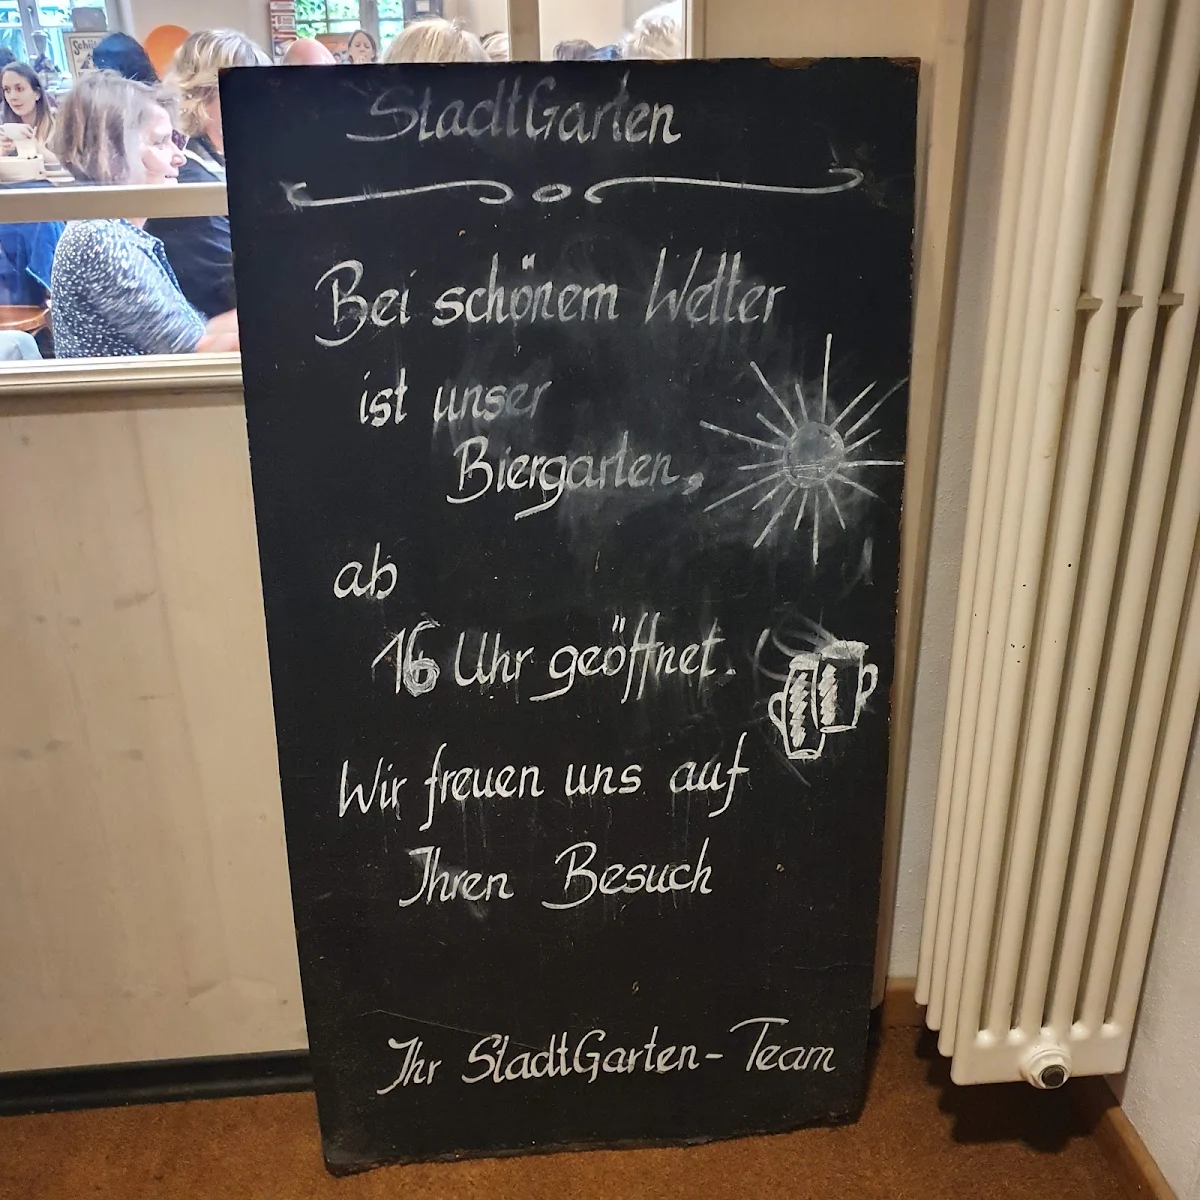 StadtGarten
Bei schönem Wetter
ist unser
Biergarten,
ab
16 Uhr geöffnet.
Wir freuen uns auf
Ihren Besuch
Ihr StadtGarten-Team